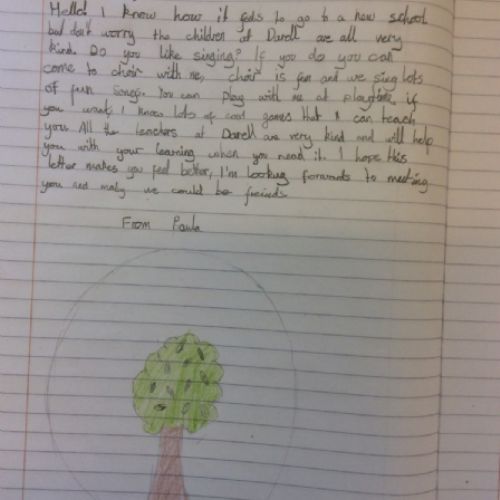 Hello! I know how it feels to go to a new school
but don't worry the children at Darell are all very
kind. Do you like singing? If you do you can
come to choir with me, choir is fun and we sing lots
of fun songs. You can play with me at playtime if
you want, I know lots of cool games that I can teach
you. All the teachers at Darell are very kind and will help
you with your learning when you need it. I hope this
letter makes you feel better, I'm looking forwards to meeting
you and maby we could be freinds
From Paula